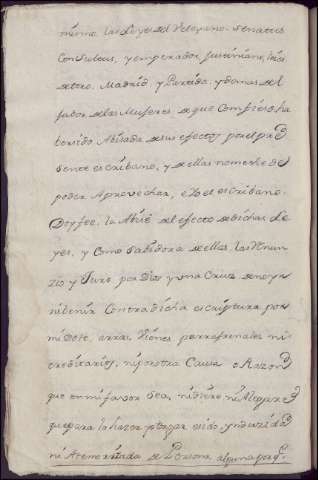 mismo las Leyes del Veleyano, Senatus
Consultus, y emperador Justiniano, leies
de toro, Madrid y Partida, y demas del
fabor de las Mugeres, de que Confieso ha
ver sido Abisada de sus efectos por el pre
sente escribano, y de ellas no me he de
poder Aprovechar, e Yo el escribano
Doy fee, la Abise del efecto de dichas Le
yes, y Como Sabidora de ellas, las Renun
zio y Juro, por Dios y una Cruz de no yr
ni benir Contra dicha escriptura por
mi Dote, arras, Vienes parrafrenales ni
ereditarios, ni por otra Causa o Razon
que en mi fabor sea, ni dire ni Alegare
que para la hazer y otorgar e sido ynduzida
ni Atemorizada de Persona alguna